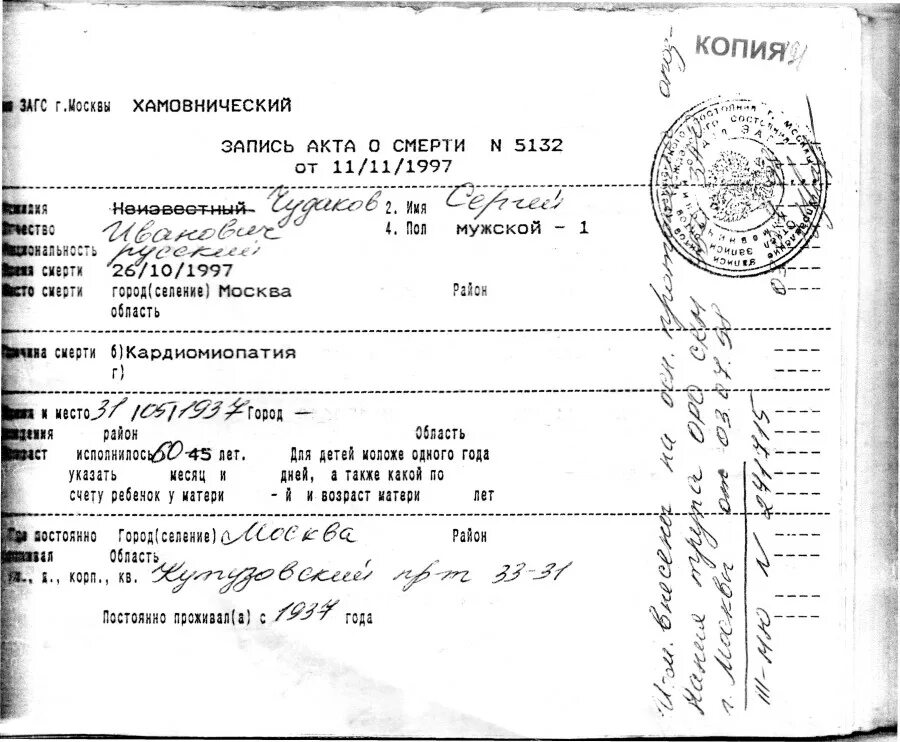 КОПИЯ
ЗАГС г.Москвы ХАМОВНИЧЕСКИЙ
ЗАПИСЬ АКТА О СМЕРТИ N 5132
от 11/11/1997
Фамилия Неизвестный Чудаков 2. Имя Сергей
Отчество Иванович 4. Пол мужской - 1
Национальность русский
Время смерти 26/10/1997
Место смерти город(селение) Москва Район
область
Причина смерти б)Кардиомиопатия
г)
и место 31/05/1937 Город -
рождения район Область
Возраст исполнилось 60 45 лет. Для детей моложе одного года
указать месяц и дней, а также какой по
счету ребенок у матери -й и возраст матери лет
Где постоянно Город(селение) Москва Район
проживал Область
ул., д., корп., кв. Кутузовский пр-т 33-31
Постоянно проживал(а) с 1937 года
внесены на осн. прот. опоз-
нания трупа ОРО СКМ
г. Москвы от 03.04.98
III-МЮ N 241715